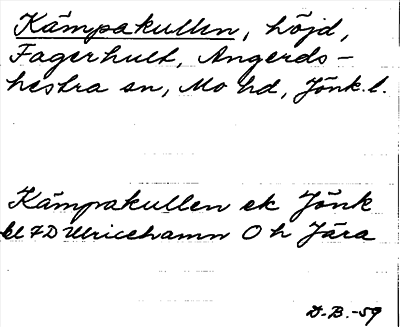 Kämpakullen, höjd,
Fagerhult, Angerds-
hestra sn, Mo hd, Jönk. l.
Kämpakullen ek Jönk
bl 7D Ulricehamn O h Jära
D.B.-59